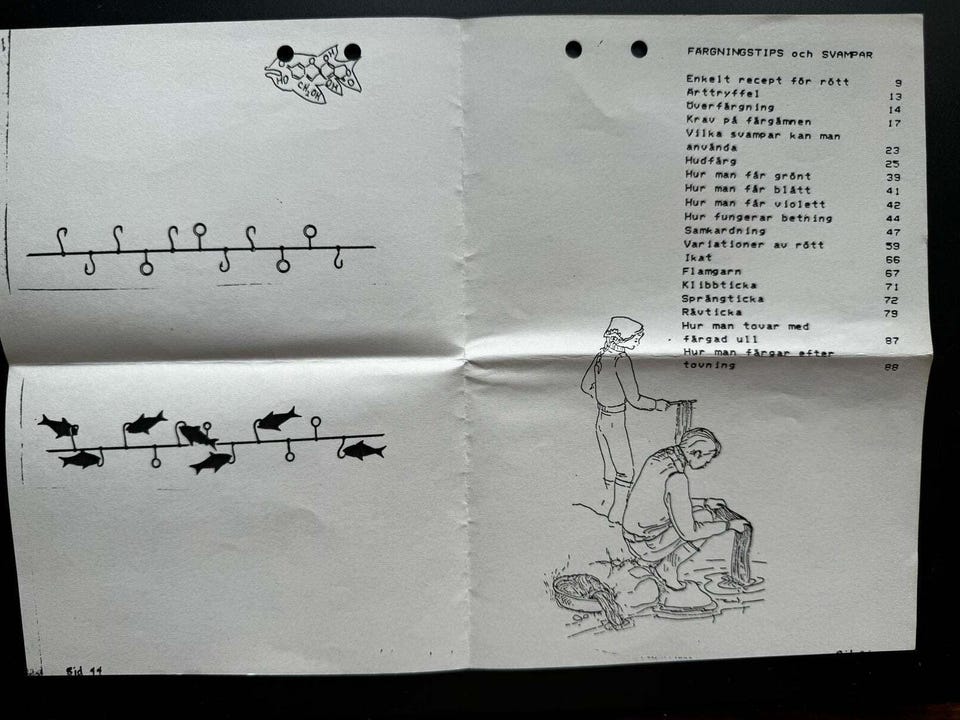 HO
OH
CH₂OH
OH
O
O
Sid 44
FÄRGNINGSTIPS och SVAMPAR
Enkelt recept för rött 9
Ärttryffel 13
Överfärgning 14
Krav på färgämnen 17
Vilka svampar kan man
använda 23
Hudfärg 25
Hur man får grönt 39
Hur man får blått 41
Hur man får violett 42
Hur fungerar betning 44
Samkardning 47
Variationer av rött 59
Ikat 66
Flamgarn 67
Klibbticka 71
Sprängticka 72
Rävticka 79
Hur man tovar med
färgad ull 87
Hur man färgar efter
tovning 88